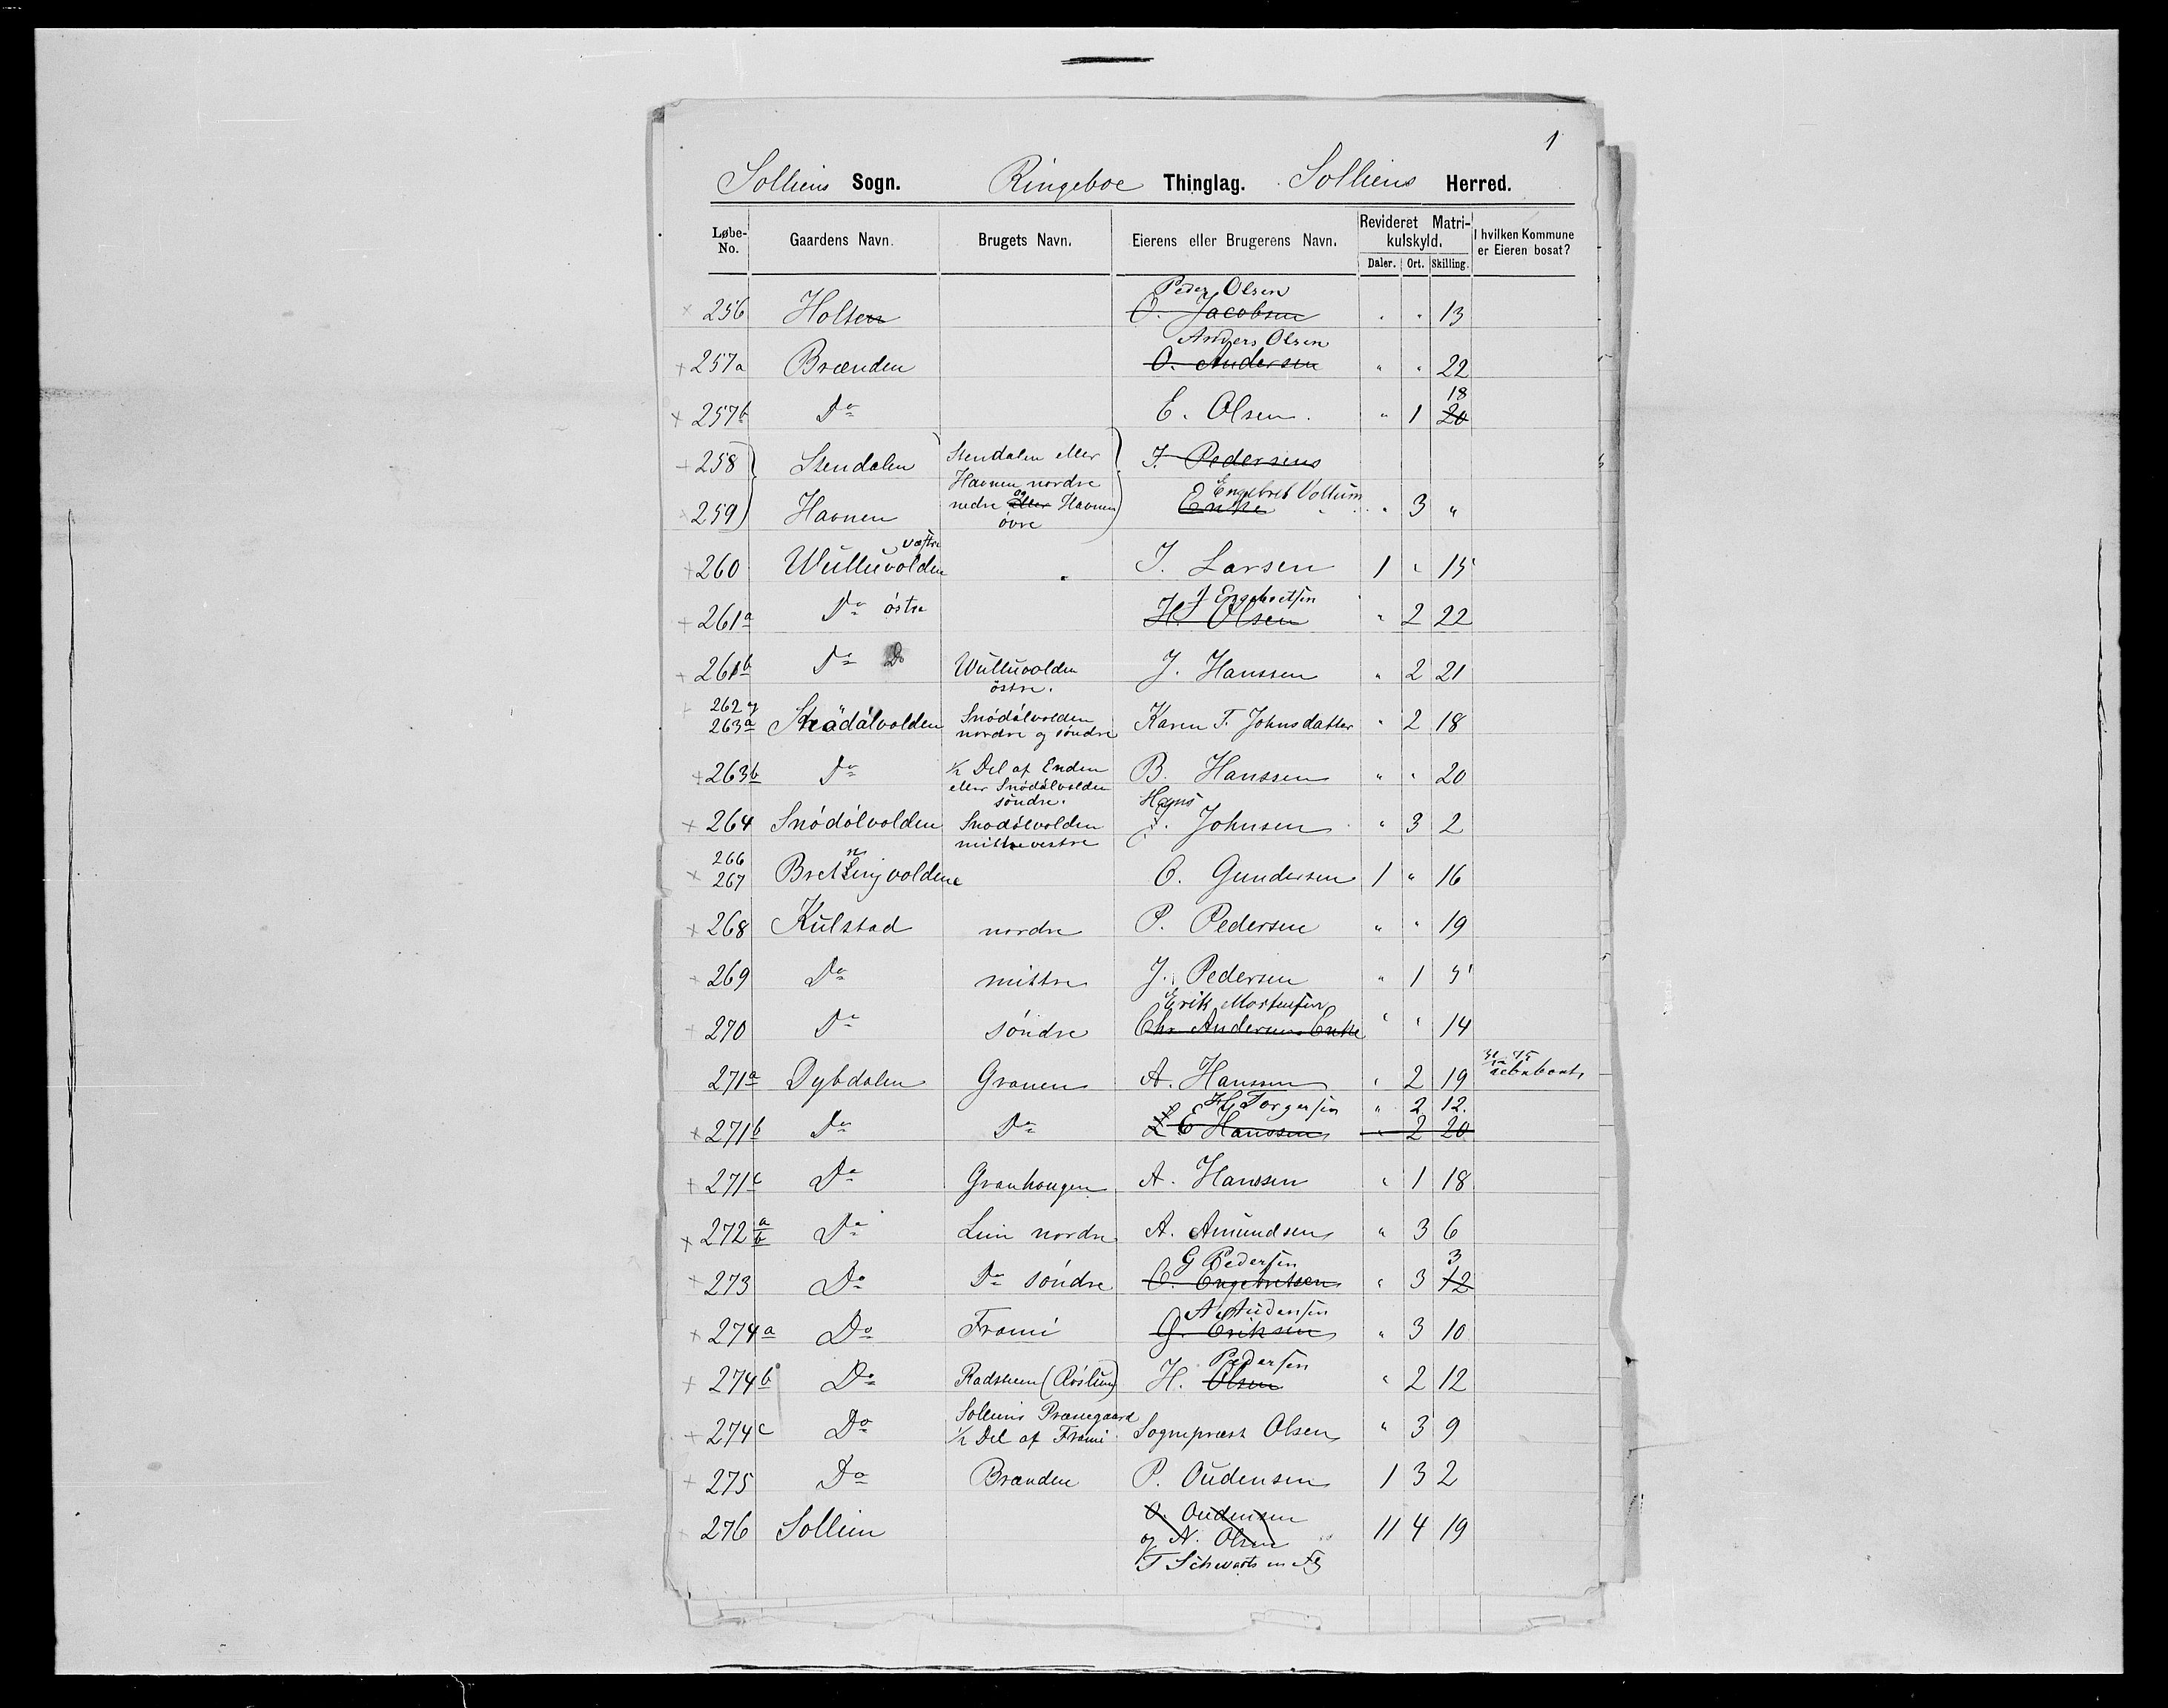 1
Solliens Sogn. Ringeboe Thinglag. Solliens Herred.
Løbe-No. Gaardens Navn. Brugets Navn. Eierens eller Brugerens Navn. Revideret Matrikulskyld. I hvilken Kommune er Eieren bosat?
Daler. Ort. Skilling.
Peder Olsen
256 Holteen O. Jacobsen " " 13
Anders Olsen
257a Brænden O. Andersen " " 22
18
257b Do E. Olsen " 1 20
258 Stendalen Stendalen eller J. Pedersens
Havnen nordre
Engebret Vollum
259 Havnen nedre eller og Havnen øvre Enke " 3 "
væstre
260 Wulluvolden J. Larsen 1 " 15
J Engebretsen
261a Do østre H. Olsen " 2 22
261b Do Do Wulluvolden østre. J. Hanssen " 2 21
262 og
263a Snødølvolden Snødølvolden nordre og søndre Karen T. Johnsdatter " 2 18
263b Do ½ Del af Enden eller Snødølvolden søndre. B. Hanssen " " 20
Hans
264 Snødølvolden Snødølvolden mittre vestre J. Johnsen " 3 2
266
267 Bretningvoldene O. Gundersen 1 " 16
268 Kulstad nordre P. Pedersen " " 19
269 Do mittre J. Pedersen " 1 5
Erik Mortensen
270 Do søndre Chr Andersens Enke " " 14
271a Dybdalen Granen A. Hanssen " 2 19
H G Torgersen " 2 12.
271b Do Do E Hanssen " 2 20
271c Do Granhougen A. Hanssen " 1 18
272 a b Do Lien nordre A. Amundsen " 3 6
G Pedersen 3
273 Do Do søndre O. Engebretsen " 3 12
A Audensen
274a Do Frami G. Eriksen " 3 10
Pedersen
274b Do Radstuen (Røslien) H. Olsen " 2 12
274c Do Solliens Præstegaard ½ Del af Frami Sognepræst Olsen " 3 9
275 Do Brænden P. Oudensen 1 3 2
276 Sollien O. Oudensen og N. Olsen 11 4 19
T Schwarts